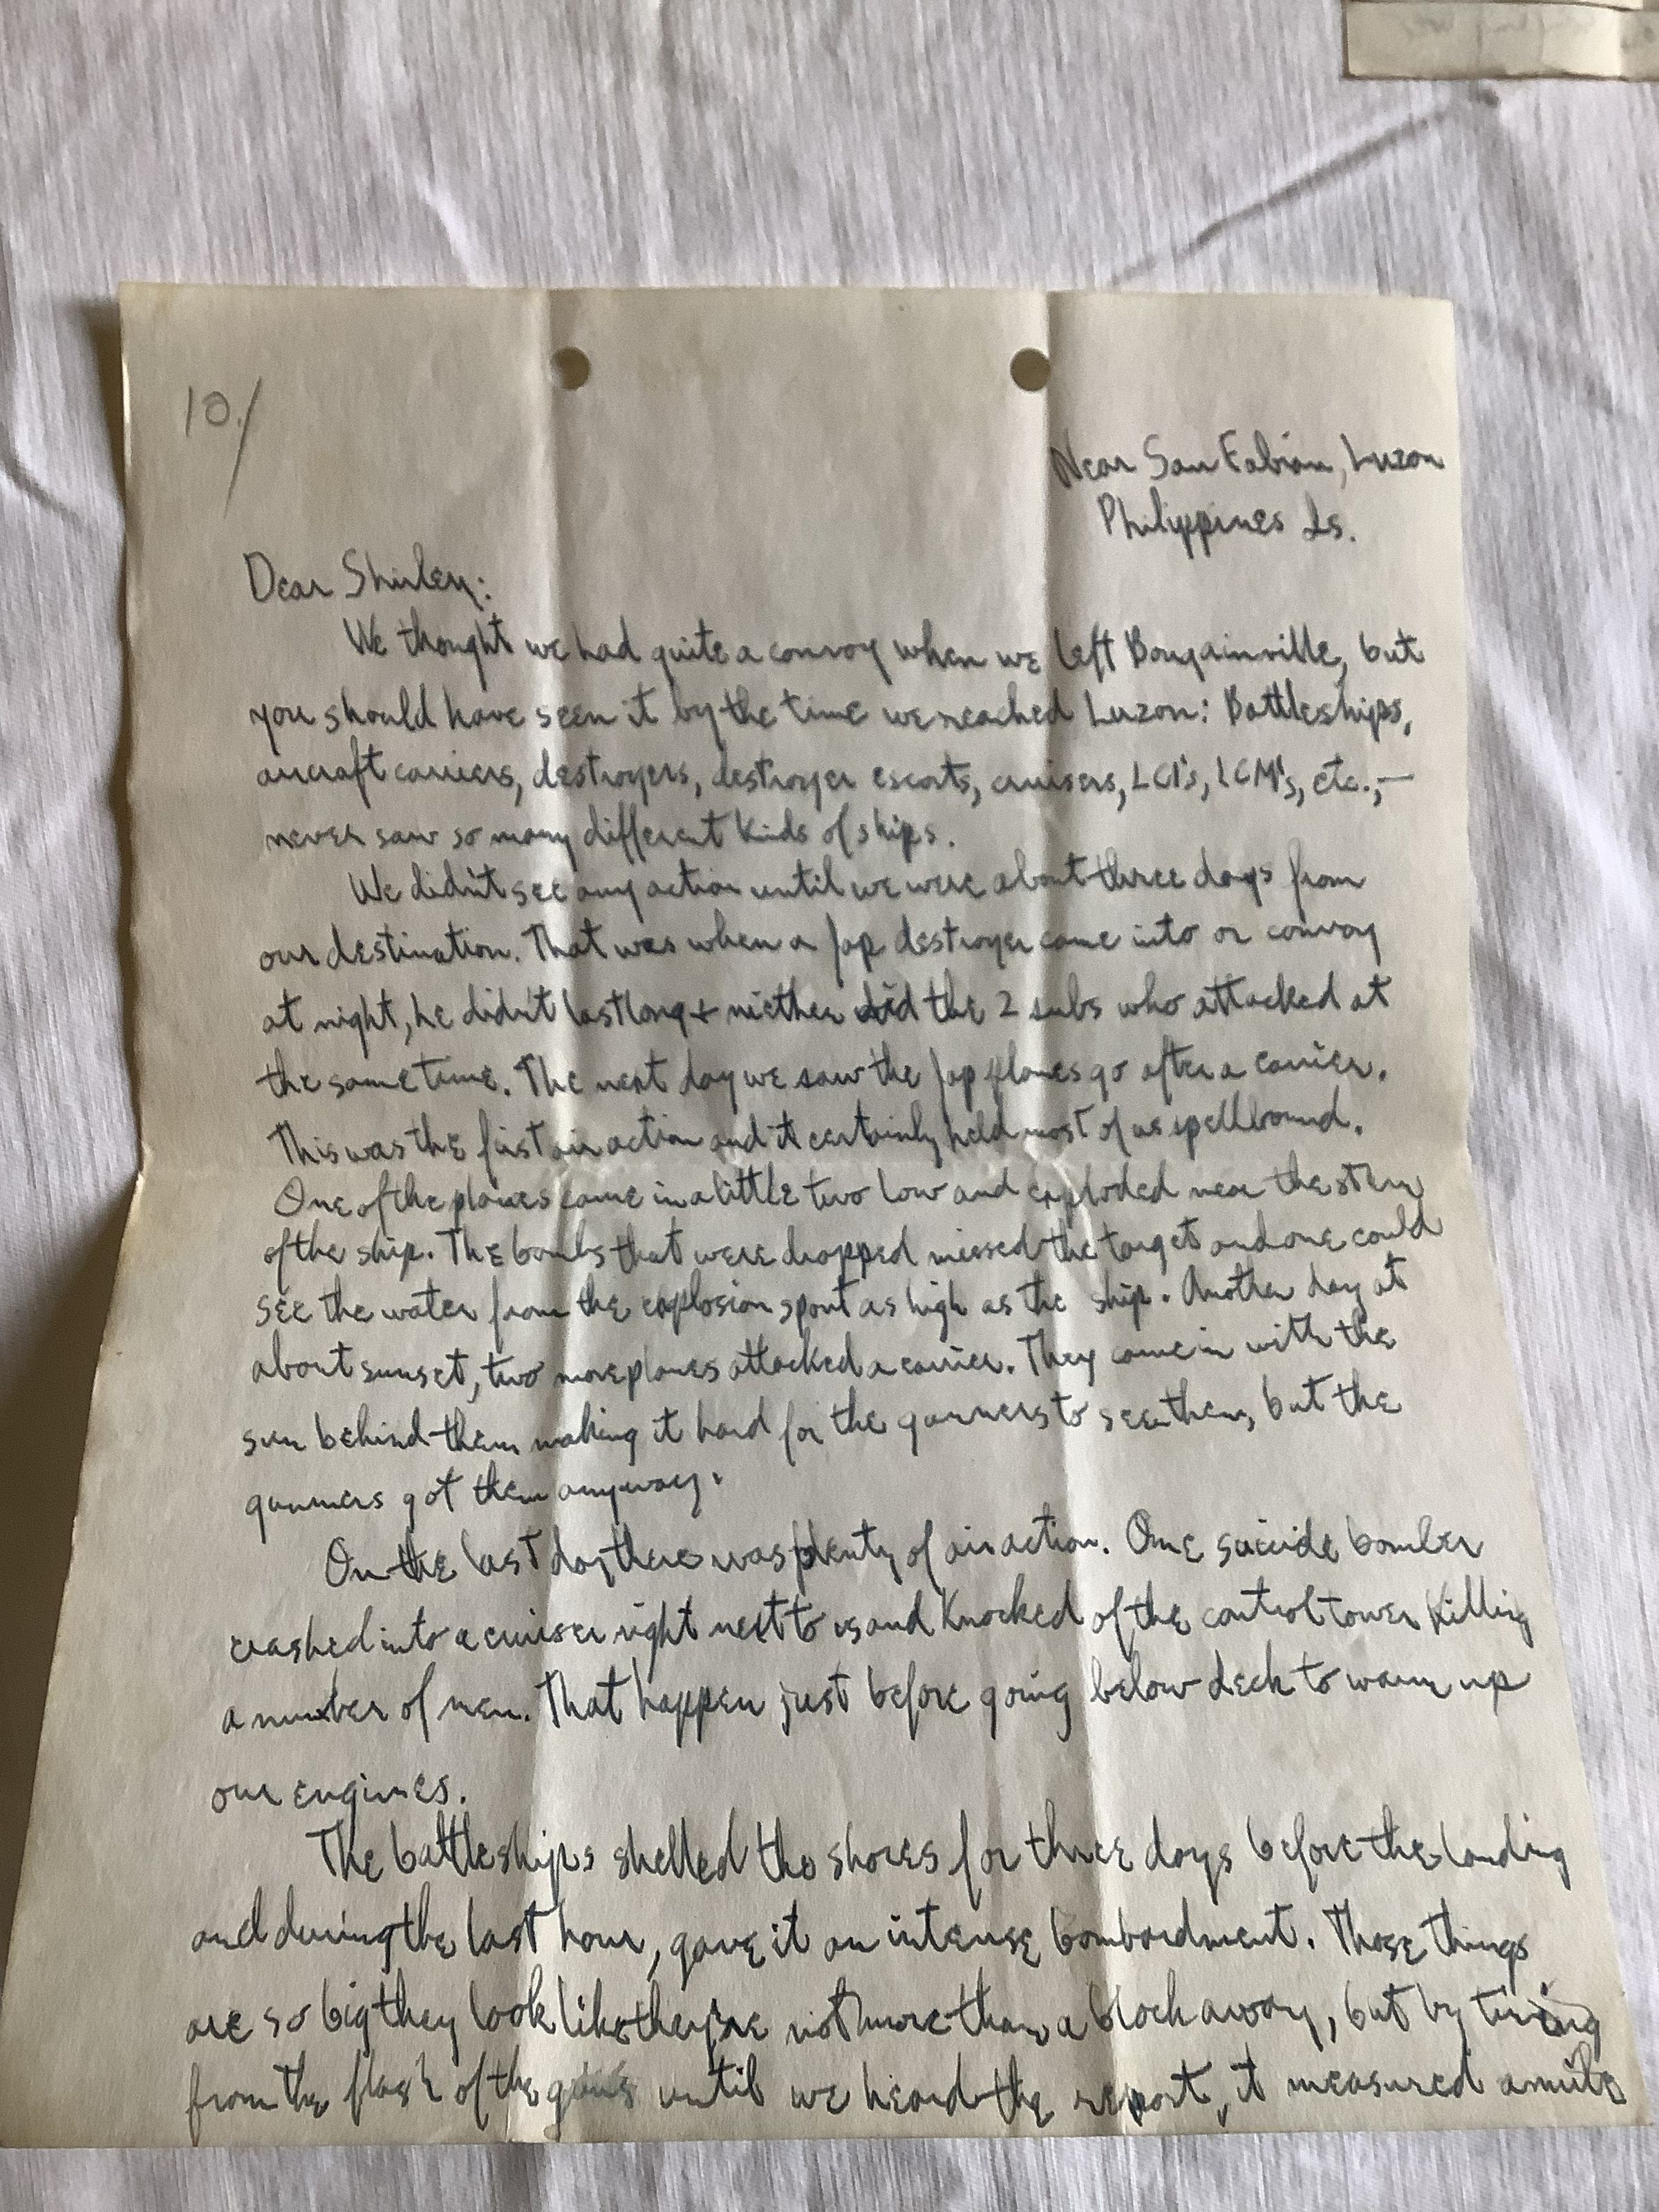 10./
Near San Fabian, Luzon
Philippines Is.
Dear Shirley:
We thought we had quite a convoy when we left Bougainville, but
you should have seen it by the time we reached Luzon: Battleships,
aircraft carriers, destroyers, destroyer escorts, cruisers, LCI's, LCM's, etc., —
never saw so many different kinds of ships.
We didn't see any action until we were about three days from
our destination. That was when a Jap destroyer came into or convoy
at night, he didn't last long & niether did the 2 subs who attacked at
the same time. The next day we saw the Jap planes go after a carrier.
This was the first air action and it certainly held most of us spellbound.
One of the planes came in a little two low and exploded near the stern
of the ship. The bombs that were dropped missed the target and one could
see the water from the explosion spout as high as the ship. Another day at
about sunset, two more planes attacked a carrier. They came in with the
sun behind them making it hard for the gunners to see them, but the
gunners got them anyway.
On the last day there was plenty of air action. One suicide bomber
crashed into a cruiser right next to us and knocked of the control tower killing
a number of men. That happen just before going below deck to warm up
our engines.
The battleships shelled the shores for three days before the landing
and during the last hour, gave it an intense bombardment. Those things
are so big they look like they're not more than a block away, but by timing
from the flash of the guns until we heard the report, it measured a mile